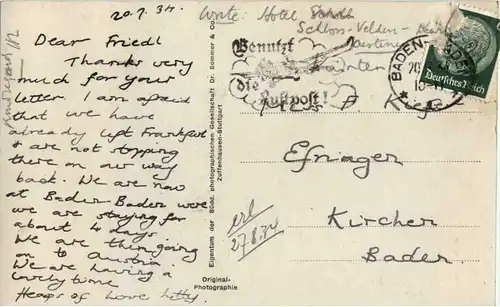 20.7.34.
Dear Friedl
Thanks very
much for your
letter. I am afraid
that we have
already left Frankfort
& are not stopping
there on our way
back. We are now
at Baden Baden were
we are staying for
about 4 days
We are then going
on to Austria.
We are having a
lovely time
Heaps of Love
Write: Hotel
Schloss-Velden-
Benutzt
die
Luftpost!
BADEN-
20
Deutsches Reich
Efringer
Kirchen
Baden
erl
27.8.34
Eigentum der Südd. photographischen Gesellschaft Dr. Sommer & Co.
Zuffenhausen-Stuttgart
Original-
Photographie